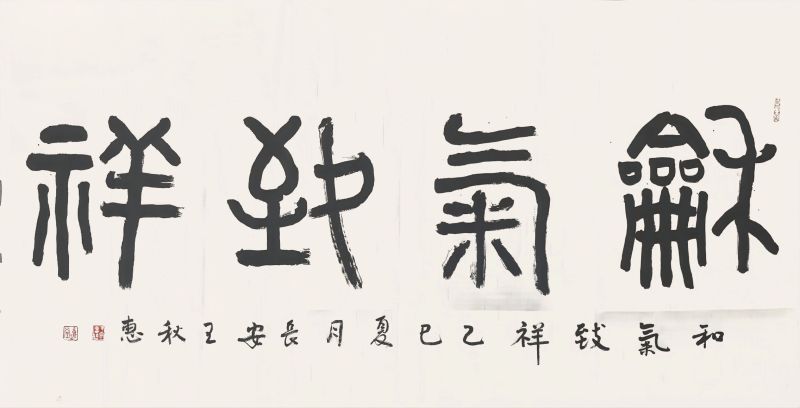 龢氣致祥
和氣致祥乙巳夏月長安王秋惠